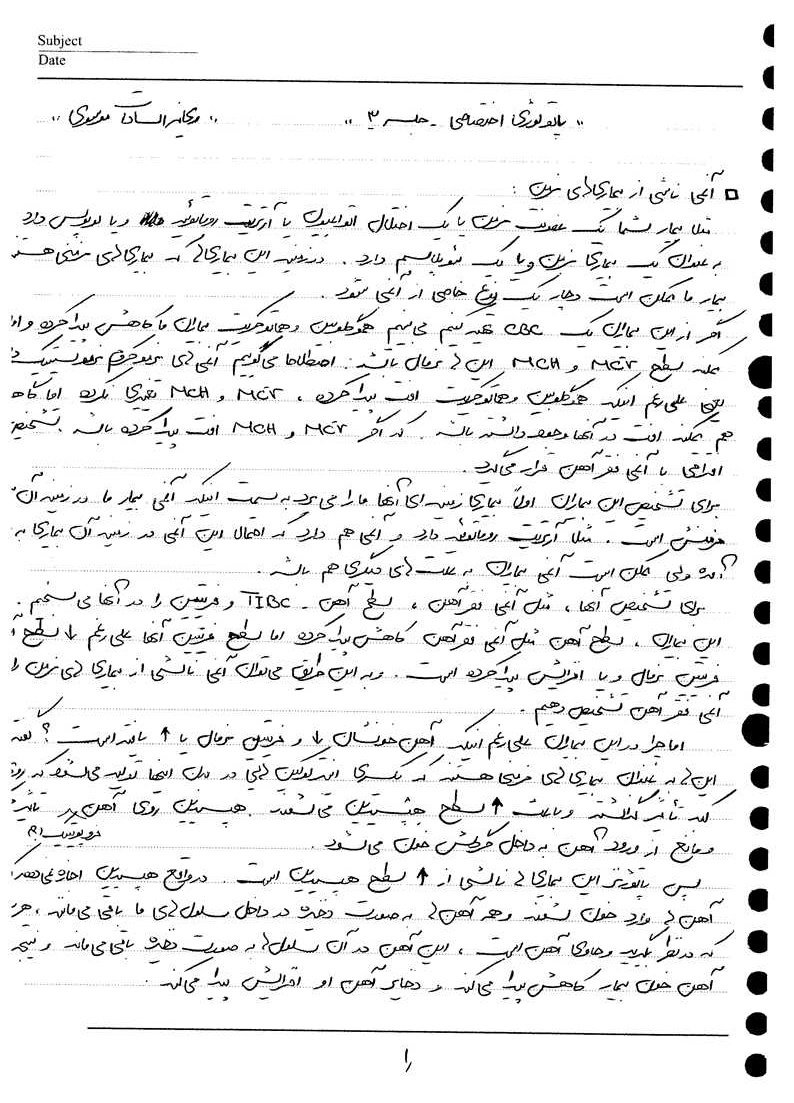 Subject
Date
" پاتولوژی اختصاصی - جلسه ۳ " " ریحانه السادات موسوی "
آنمی ناشی از بیماری‌های مزمن :
مثلا بیمار شما یک عفونت مزمن یا یک اختلال اتوایمیون یا آرتریت روماتوئید و یا لوپوس دارد
به عنوان یک بیماری مزمن و یا یک نئوپلاسم دارد . در زمینه این بیماری‌ها که بیماری‌های مزمنی هستند
بیمار ما ممکن است دچار یک نوع خاصی از آنمی شود .
اگر از این بیماران یک CBC تهیه کنیم می‌بینیم هموگلوبین و هماتوکریت بیماران ما کاهش پیدا کرده و
ممکنه سطح MCV و MCH این‌ها نرمال باشد . اصطلاحا می‌گوییم آنمی‌های نرموکروم نرموسیتیک
یعنی علی رغم اینکه هموگلوبین و هماتوکریت افت پیدا کرده ، MCV و MCH تغییری نکرده اما گاها
هم ممکنه افت در آنها وجود داشته باشه . که اگر MCV و MCH افت پیدا کرده باشه ، تشخیص
افتراقی با آنمی فقر آهن قرار می‌گیرد .
برای تشخیص این بیماران اولاً بیماری زمینه ای آنها ما را می برد به سمت اینکه آنمی بیمار ما در زمینه آن
مزمنش است . مثلا آرتریت روماتوئید دارد و آنمی هم دارد که احتمالا این آنمی در زمینه آن بیماری به
آمده ولی ممکن است آنمی بیماران به علت‌های دیگری هم باشه .
برای تشخیص آنها ، مثل آنمی فقر آهن ، سطح آهن - TIBC و فریتین را در آنها می‌سنجیم .
این بیماران ، سطح آهن مثل آنمی فقر آهن کاهش پیدا کرده اما سطح فریتین آنها علی رغم ↓ سطح
فریتین نرمال و یا افزایش پیدا کرده است . و به این طریق می‌توان آنمی ناشی از بیماری های مزمن را
آنمی فقر آهن تشخیص دهیم .
اما چرا در این بیماران علی رغم اینکه آهن خونشان ↓ و فریتین نرمال یا ↑ یافته است ؟ گفته
این‌ها به عنوان بیماری‌های مزمن هستند که یکسری اینترلوکین هایی در بدن اینها تولید می‌شود که روی
کبد تأثیر گذاشته و باعث ↑ سطح هپسیدین می‌شوند . هپسیدین روی آهن تأثیر
فروپورتین
و مانع از ورود آهن به داخل گردش خون می‌شود .
پس پاتوژنز این بیماری‌ها ناشی از ↑ سطح هپسیدین است . در واقع هپسیدین اجازه نمی‌دهد که
آهن‌ها وارد خون بشوند و همه آهن‌ها به صورت ذخیره در داخل سلول‌های ما باقی می‌ماند ، هر
که در نظر بگیرید و حاوی آهن است ، این آهن در آن سلول‌ها به صورت ذخیره باقی می‌ماند و نتیجه
آهن خون بیمار کاهش پیدا می‌کند و ذخایر آهن او افزایش پیدا می‌کند .
۱